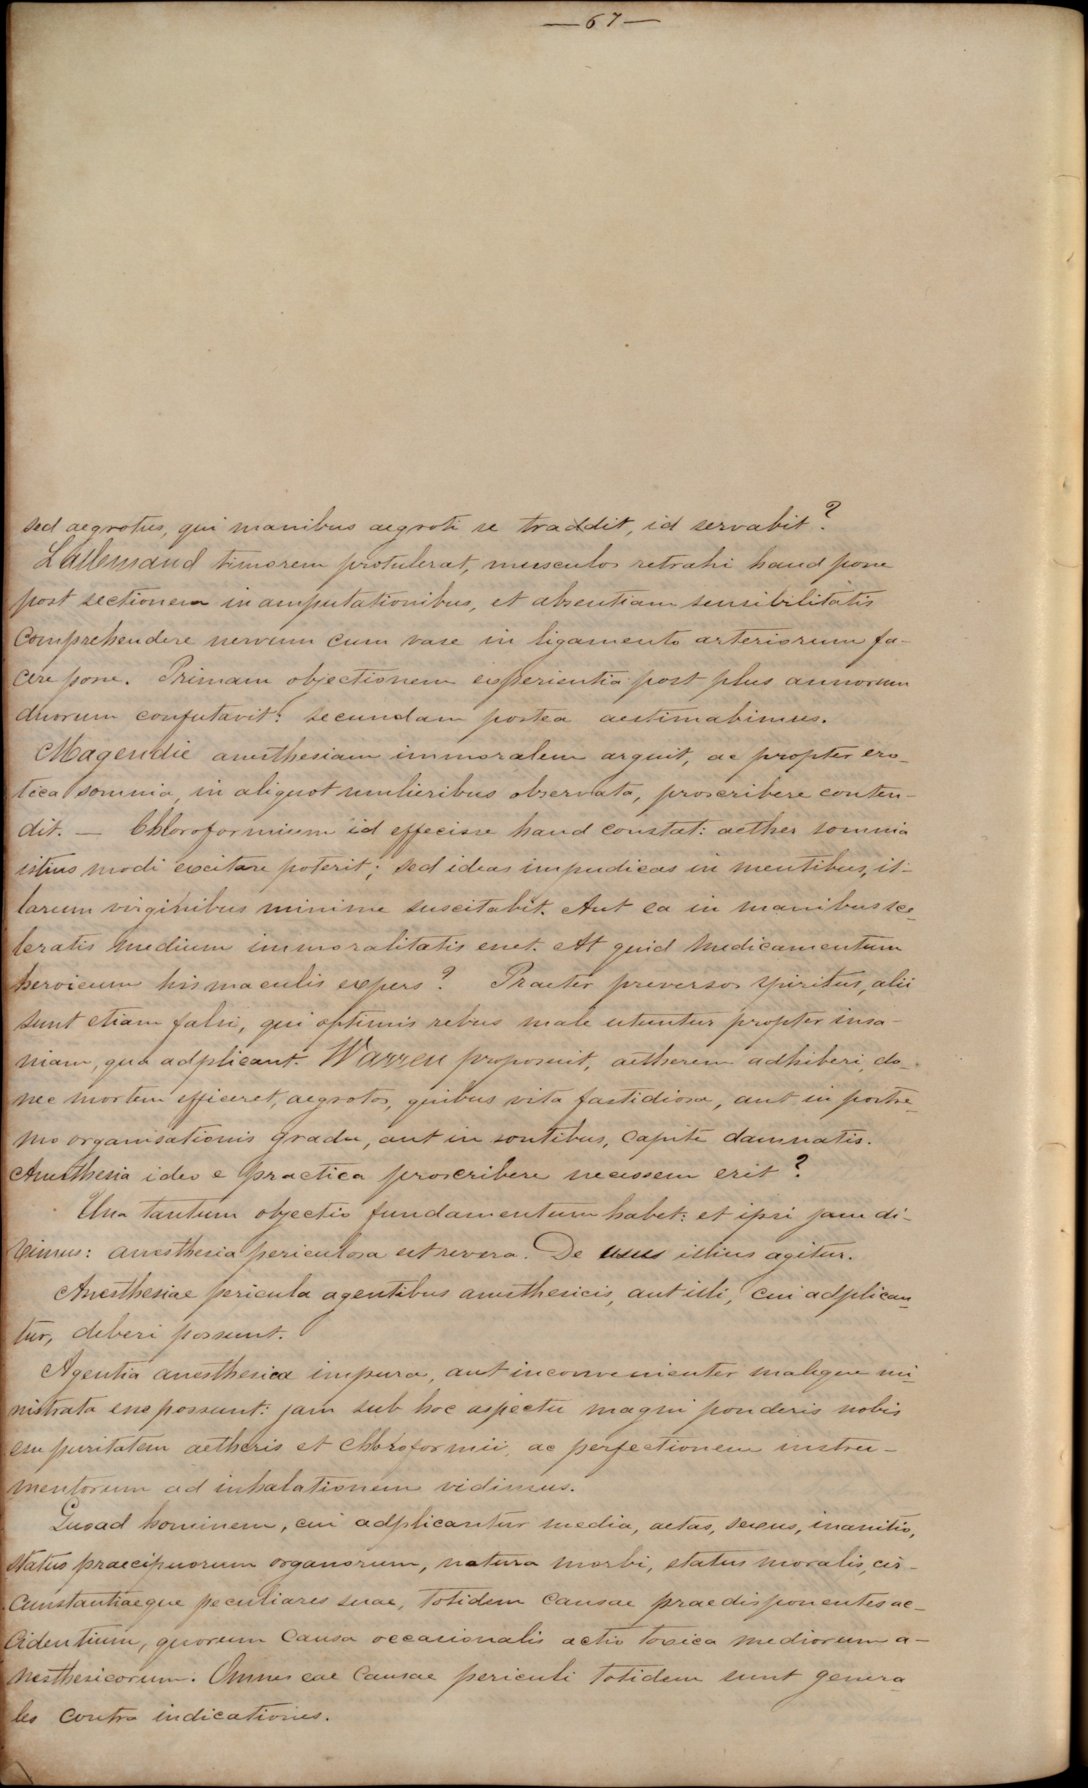 —67—
sed aegrotus, qui manibus aegroti se traddit, id servabit?
Lallemand timorem protulerat, musculos retrahi haud posse
post sectionem in amputationibus, et absentiam sensibilitatis
comprehendere nervum cum vase in ligamento arteriorum fa-
cere posse. Primam objectionem experientia post plus annorum
duorum confutavit: secundam postea aestimabimus.
Magendie anesthesiam immoralem arguit, ac propter ero-
tica somnia, in aliquot mulieribus observata, proscribere conten-
dit. — Chloroformium id effecisse haud constat: aether somnia
istius modi excitare poterit; sed ideas impudicas in mentibus, il-
larum virginibus minime suscitabit. Aut ea in manibus sce-
leratis medium immoralitatis esset. At quid medicamentum
heroicum his maculis expers? Praeter preversos spiritus, alii
sunt etiam falsi, qui optimis rebus male utuntur propter insa-
niam, qua adplicant. Warren proposuit, aetherem adhiberi, do-
nec mortem efficeret, aegrotos, quibus vita fastidiosa, aut in postre-
mo organisationis gradu, aut in sontibus, capite damnatis.
Anesthesia ideo e practica proscribere necessem erit?
Una tantum objectio fundamentum habet: et ipsi jam di-
ximus: anesthesia periculosa est revera. De usus illius agitur.
Anesthesiae pericula agentibus anesthesicis, aut illi, cui adplican-
tur, deberi possunt.
Agentia anesthesica impura, aut inconvenienter maleque mi-
nistrata esse possunt: jam sub hoc aspectu magni ponderis nobis
esse puritatem aetheris et chloroformii, ac perfectionem instru-
mentorum ad inhalationem vidimus.
Quoad hominem, cui adplicantur media, aetas, sexus, inanitio,
status praecipuorum organorum, natura morbi, status moralis, cir-
cumstantiaeque peculiares suae, totidem causae praedisponentes ac-
cidentium, quorum causa occasionalis actio toxica mediorum a-
nesthesicorum. Omnes eae causae periculi totidem sunt genera-
les contra indicationes.